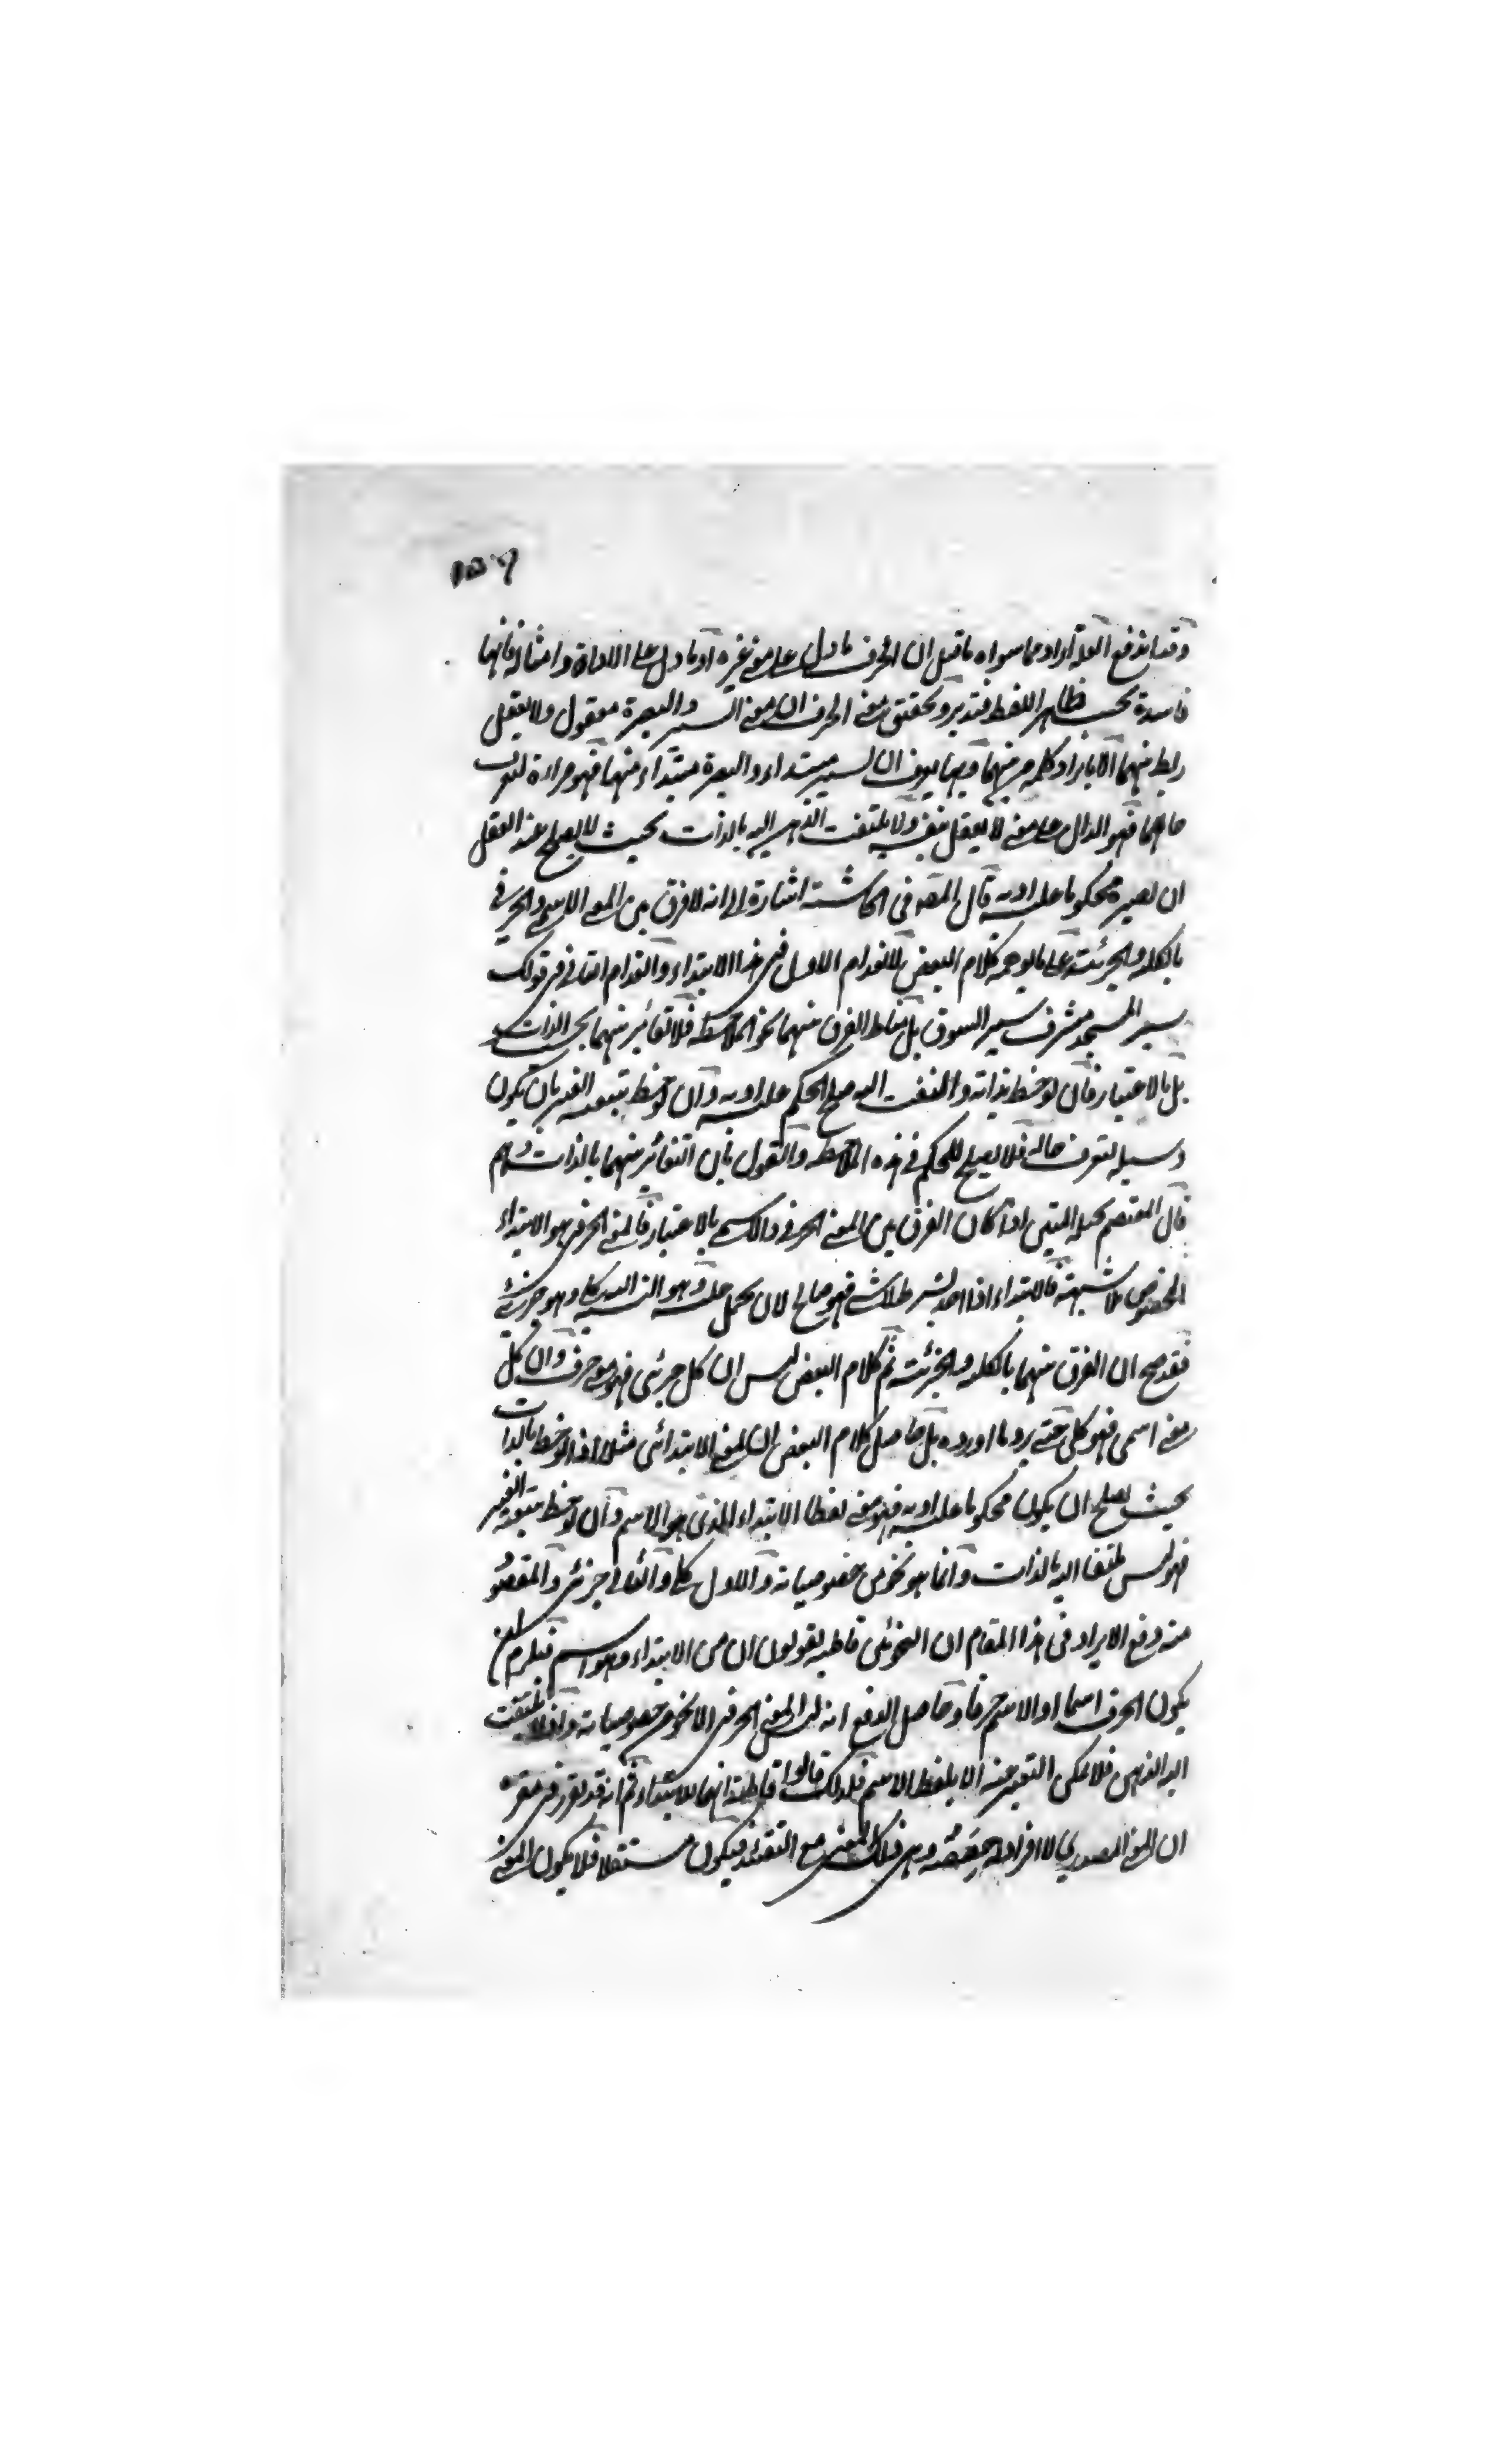 وقد اندفع العلة اراد مما سواه ما قيل ان الحرف ما دل على معنى غيره او ما دل على الاداة وامثاله فانها
فاسدة بحسب ظاهر اللفظ فتدبر وتحقيق معنى الحرف ان معنى السير والبصرة معقول ولا يعقل
ربط منهما الا بايراد كلمة من منهما وبها يعرف ان السير مبتداء والبصرة مبتداء منها فهو مراة لتعرف
حالهما فهو الدال على معنى لا يعقل بنفسه ولا يلتفت الذهن اليه بالذات بحيث لا يصلح عند العقل
ان يصير محكوما عليه او به قال المصه في الحاشية اشارة الى انه لا فرق بين المعنى الاسمى والحرفي
بالكلية والجزئية على ما يوهمه كلام البعض لانعدام الاول في هذا الابتداء وانعدام الثاني في قولك
سير المسجد مشرف سير السوق بل مناط الفرق منهما نحو الملاحظة فلا تغائر منهما بحسب الذات
بل بالاعتبار فان لوحظ بذاته والتفت اليه صلح الحكم عليه او به وان لوحظ بتبعية الغير بان يكون
وسيلة لتعرف حاله فلا يصلح للحكم في هذه الملاحظة والقول بان التغائر منهما بالذات وهم
قال المعتصم بحبله المتين اذا كان الفرق بين المعنى الحرفي والاسمى بالاعتبار فالمعنى الحرفي هو الابتداء
المخصوص فلا شبهة فالابتداء اذا اخذ بشرط لا شى فهو صالح لان يحمل عليه وهو النسبة كلي وهو جزئي
فقد صح ان الفرق منهما بالكلية والجزئية ثم كلام البعض ليس ان كل جزئى فهو معنى حرف وان كل
معنى اسمى فهو كلى حتى يرد ما اورده بل حاصل كلام البعض ان المعنى الابتدائى مثلا اذا لوحظ بالذات
بحيث يصلح ان يكون محكوما عليه او به فهو معنى لفظ الابتداء الذى هو الاسم وان لوحظ بتبعية الغير
فهو ليس ملتفتا اليه بالذات وانما هو نحو من خصوصياته والاول كلى والثانى جزئى والمقصود
منه دفع الايراد فى هذا المقام ان النحوئين قاطبة يقولون ان من الابتداء وهو اسم فيلزم ان
يكون الحرف اسما او الاسم حرفا وحاصل الدفع انه ليس المعنى الحرفى الا نحو من خصوصياته واذ لا يلتفت
اليه الذهن فلا يمكن التعبير عنه الا بلفظ الاسم فلذلك قالوا قاطبة انها للابتداء ثم انه قد تقرر فى مقره
ان المعنى المصدرى لا افراد له الا حصصه وهى ذلك المعنى مع التقئيد فيكون مستقلا فلا يكون المعنى